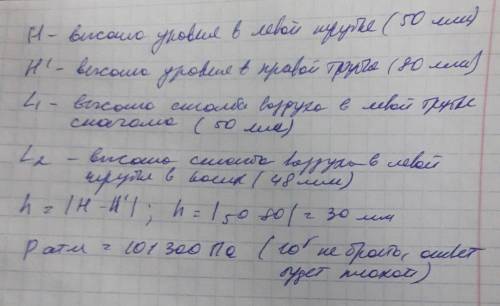 H - высота уровня в левой трубке (50 мм)
H' - высота уровня в правой трубке (80 мм)
L₁ - высота столба воздуха в левой трубке
сначала (50 мм)
L₂ - высота столба воздуха в левой
трубке в конце (48 мм)
h = |H - H'| ; h = |50 80| = 30 мм
P атм = 101 300 Па (10⁵ не брать, ответ
будет плохой)